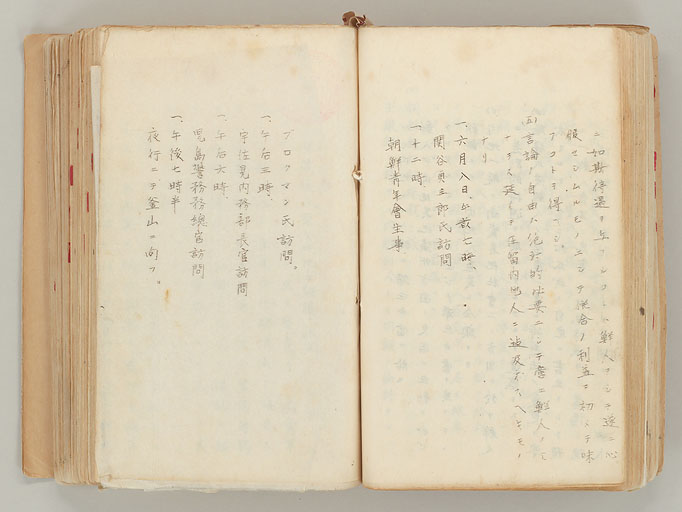 ニ如斯待遇ヲ与フルコトハ鮮人ヲシテ遂ニ心
服セシムルモノニシテ併合ノ利益ヲ初メテ味
フコトヲ得ベシ。
(五)言論ノ自由ハ絶対的必要ニシテ啻ニ鮮人ノミ
ナラズ延イテ在留内地人ニ追及スベキモノ
ナリ
一、六月八日、午前七時、
関谷貞三郎氏訪問
一、十二時、
朝鮮青年會生事
ブロックマン氏訪問。
一、午后三時、
宇佐見内務部長官訪問
一、午后六時、
児島警務務總官訪問
一、午後七時半
夜行ニテ釜山ニ向フ。